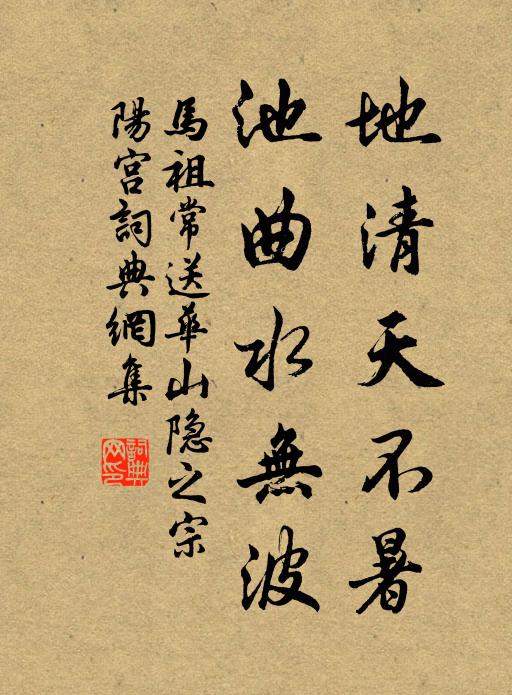 地清天不暑
池曲水無波
馬祖常送華山隐之宗
陽宮詞典網集
詞典網印